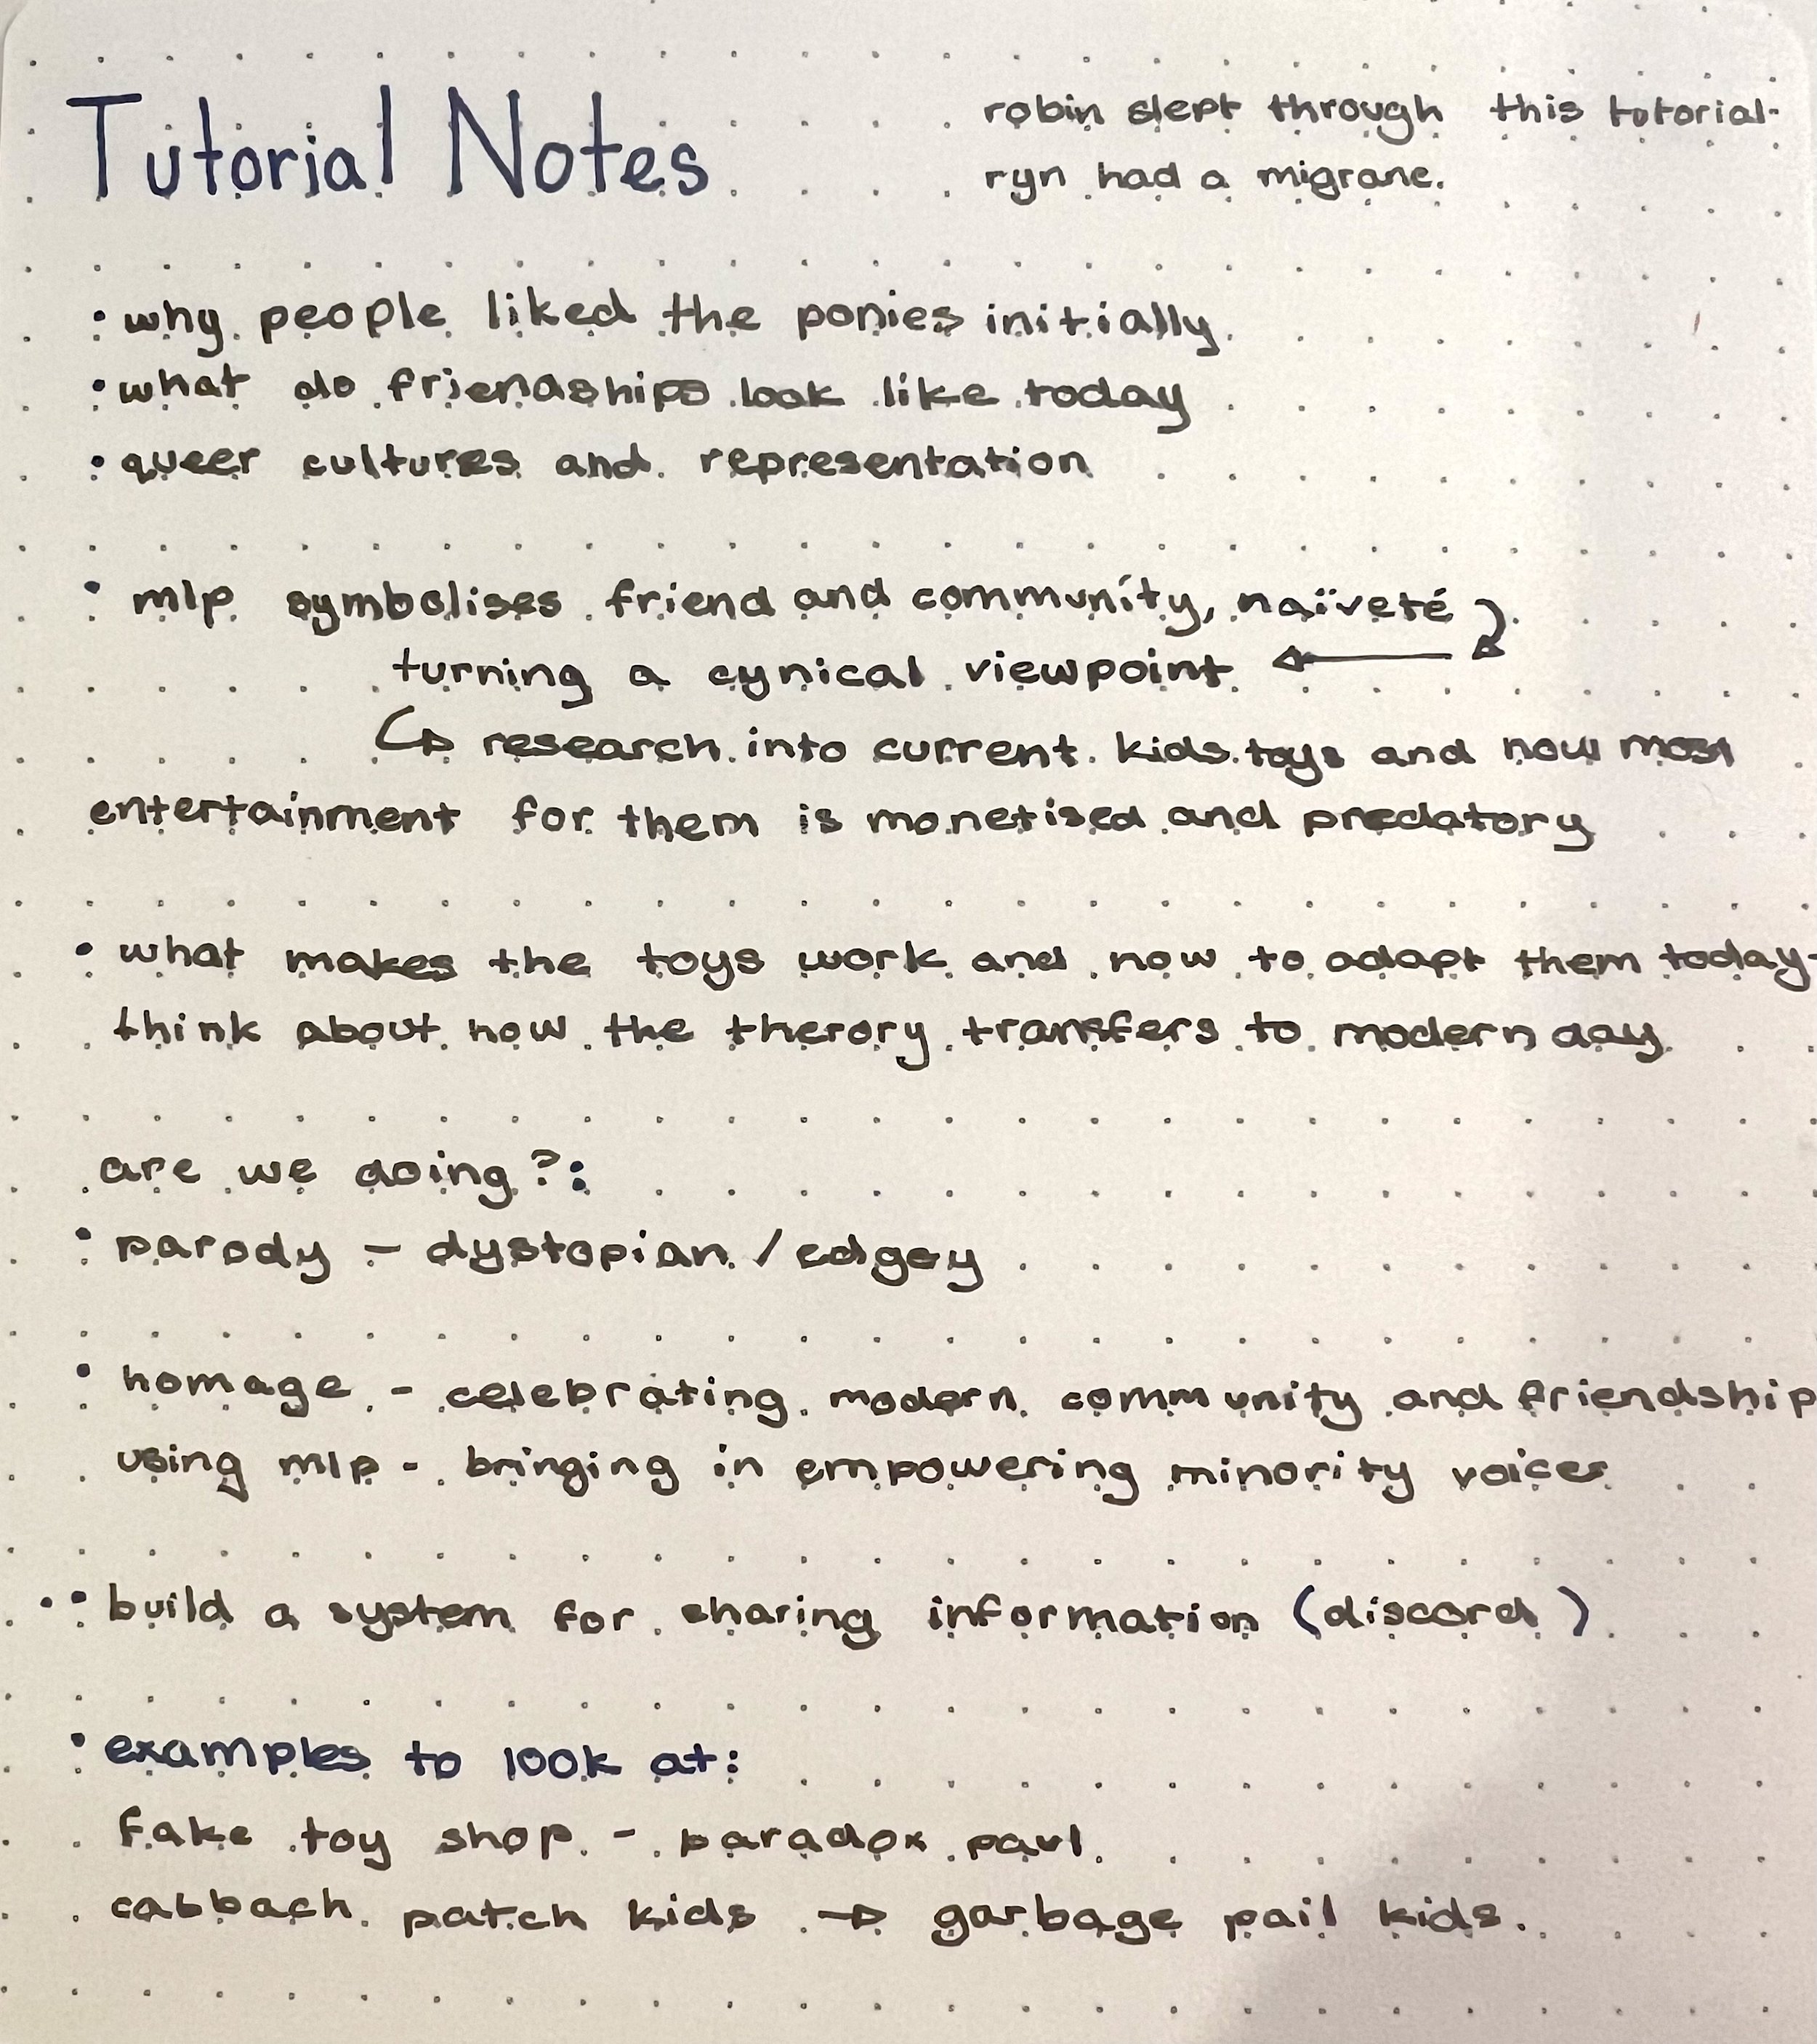 Tutorial Notes
robin slept through this tutorial-
ryn had a migrane.
• why people liked the ponies initially.
• what do friendships look like today
• queer cultures and representation
• mlp symbolises friend and community, naïveté
turning a cynical viewpoint ←
↳ research into current kids toys and how most
entertainment for them is monetised and predatory
• what makes the toys work and how to adapt them today-
think about how the therory transfers to modern day
are we doing?:
• parody - dystopian / edgey
• homage - celebrating modern community and friendship
using mlp - bringing in empowering minority voices
• build a system for sharing information (discord)
• examples to look at:
fake toy shop - paradox paul
cabbach patch kids → garbage pail kids.